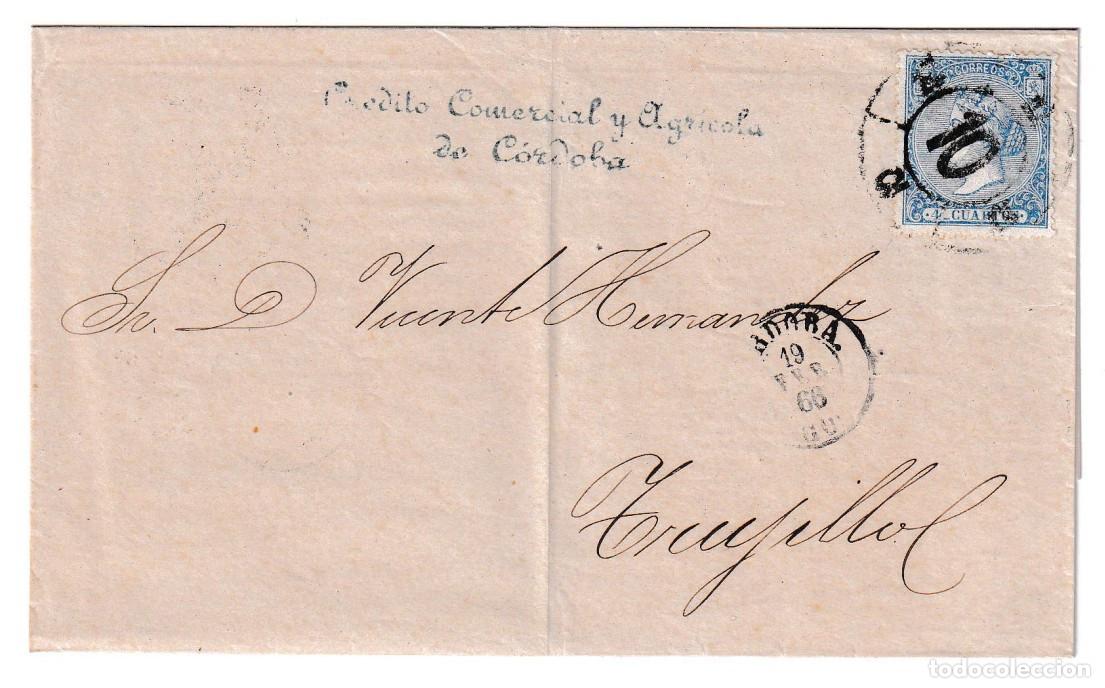 Credito Comercial y Agricola
de Córdoba
CORREOS
10
4 CUARTOS
Sr. D Vicente Hernandez
RDOBA.
19
FEB
66
Trujillo
todocoleccion